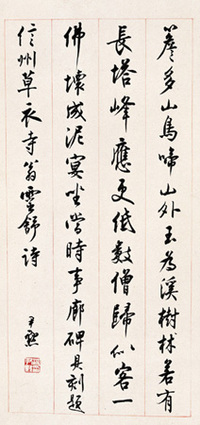 簷多山鳥啼山外玉為溪樹林若有
長塔峰應更低數僧歸似客一
佛壞成泥宴坐當時事廊碑具刻題
信州草衣寺翁靈舒詩
尹默